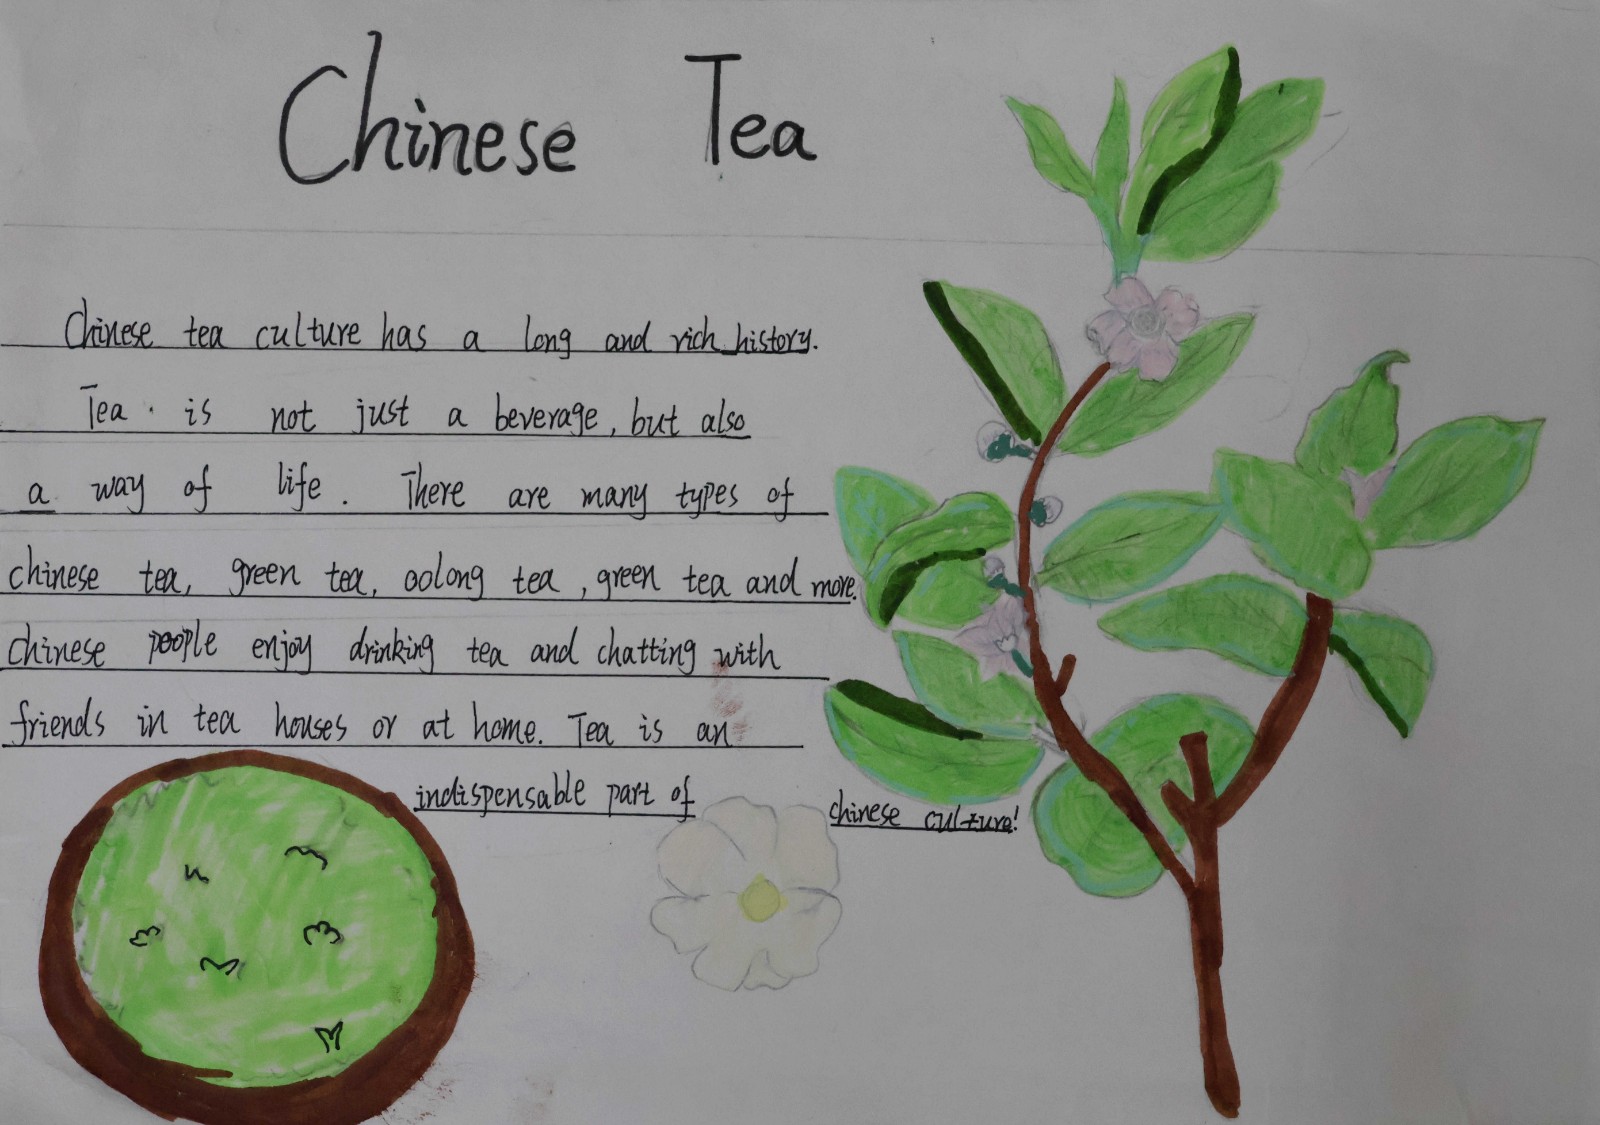 Chinese Tea
Chinese tea culture has a long and rich history.
Tea is not just a beverage, but also
a way of life. There are many types of
chinese tea, green tea, oolong tea, green tea and more.
chinese people enjoy drinking tea and chatting with
friends in tea houses or at home. Tea is an
indispensable part of chinese culture!